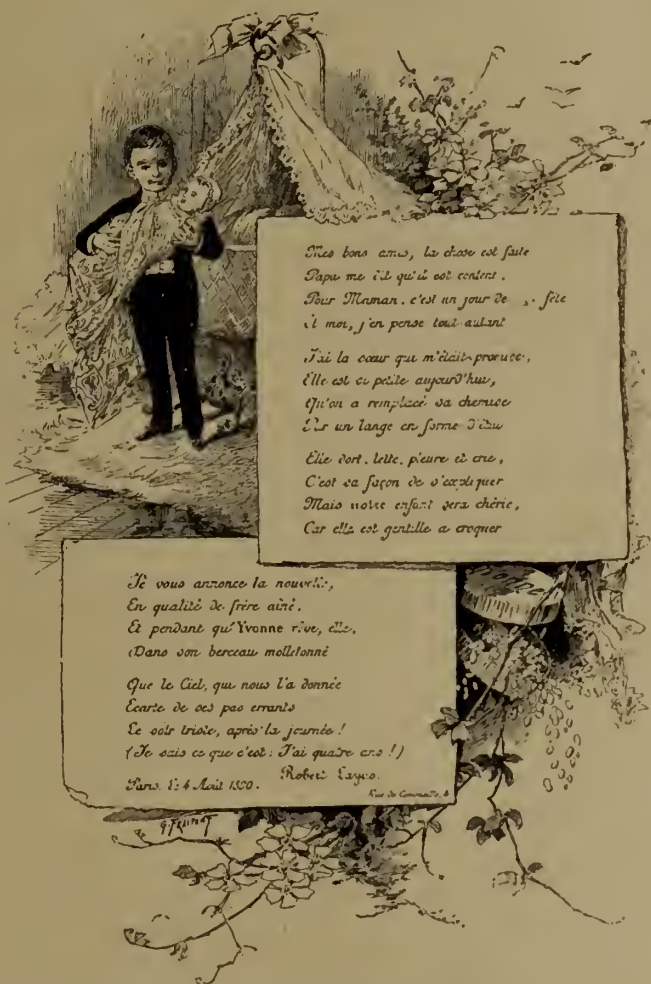 Mes bons amis, la chose est faite
Papa me dit qu'il est content,
Pour Maman, c'est un jour de fête
Et moi, j'en pense tout autant
J'ai la sœur qui m'était promise,
Elle est si petite aujourd'hui,
Qu'on a remplacé sa chemise
Par un lange en forme d'étui
Elle dort, tette, pleure et crie,
C'est sa façon de s'expliquer
Mais notre enfant sera chérie,
Car elle est gentille a croquer
Je vous annonce la nouvelle,
En qualité de frère aîné,
Et pendant qu'Yvonne rêve, elle,
Dans son berceau molletonné
Que le Ciel, qui nous l'a donnée
Ecarte de ses pas errants
Le soir triste, après la journée !
(Je sais ce que c'est : J'ai quatre ans !)
Robert
Paris, Le 4 Août
Rue de